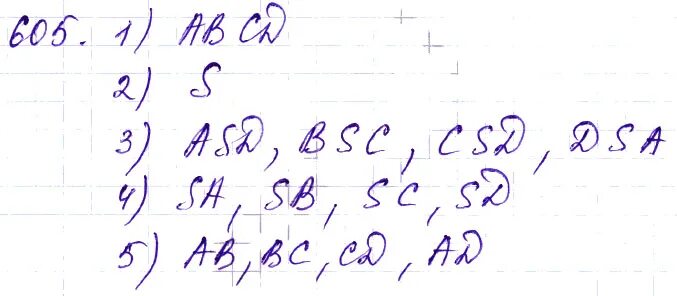 605. 1) ABCD
2) S
3) ASD, BSC, CSD, DSA
4) SA, SB, SC, SD
5) AB, BC, CD, AD